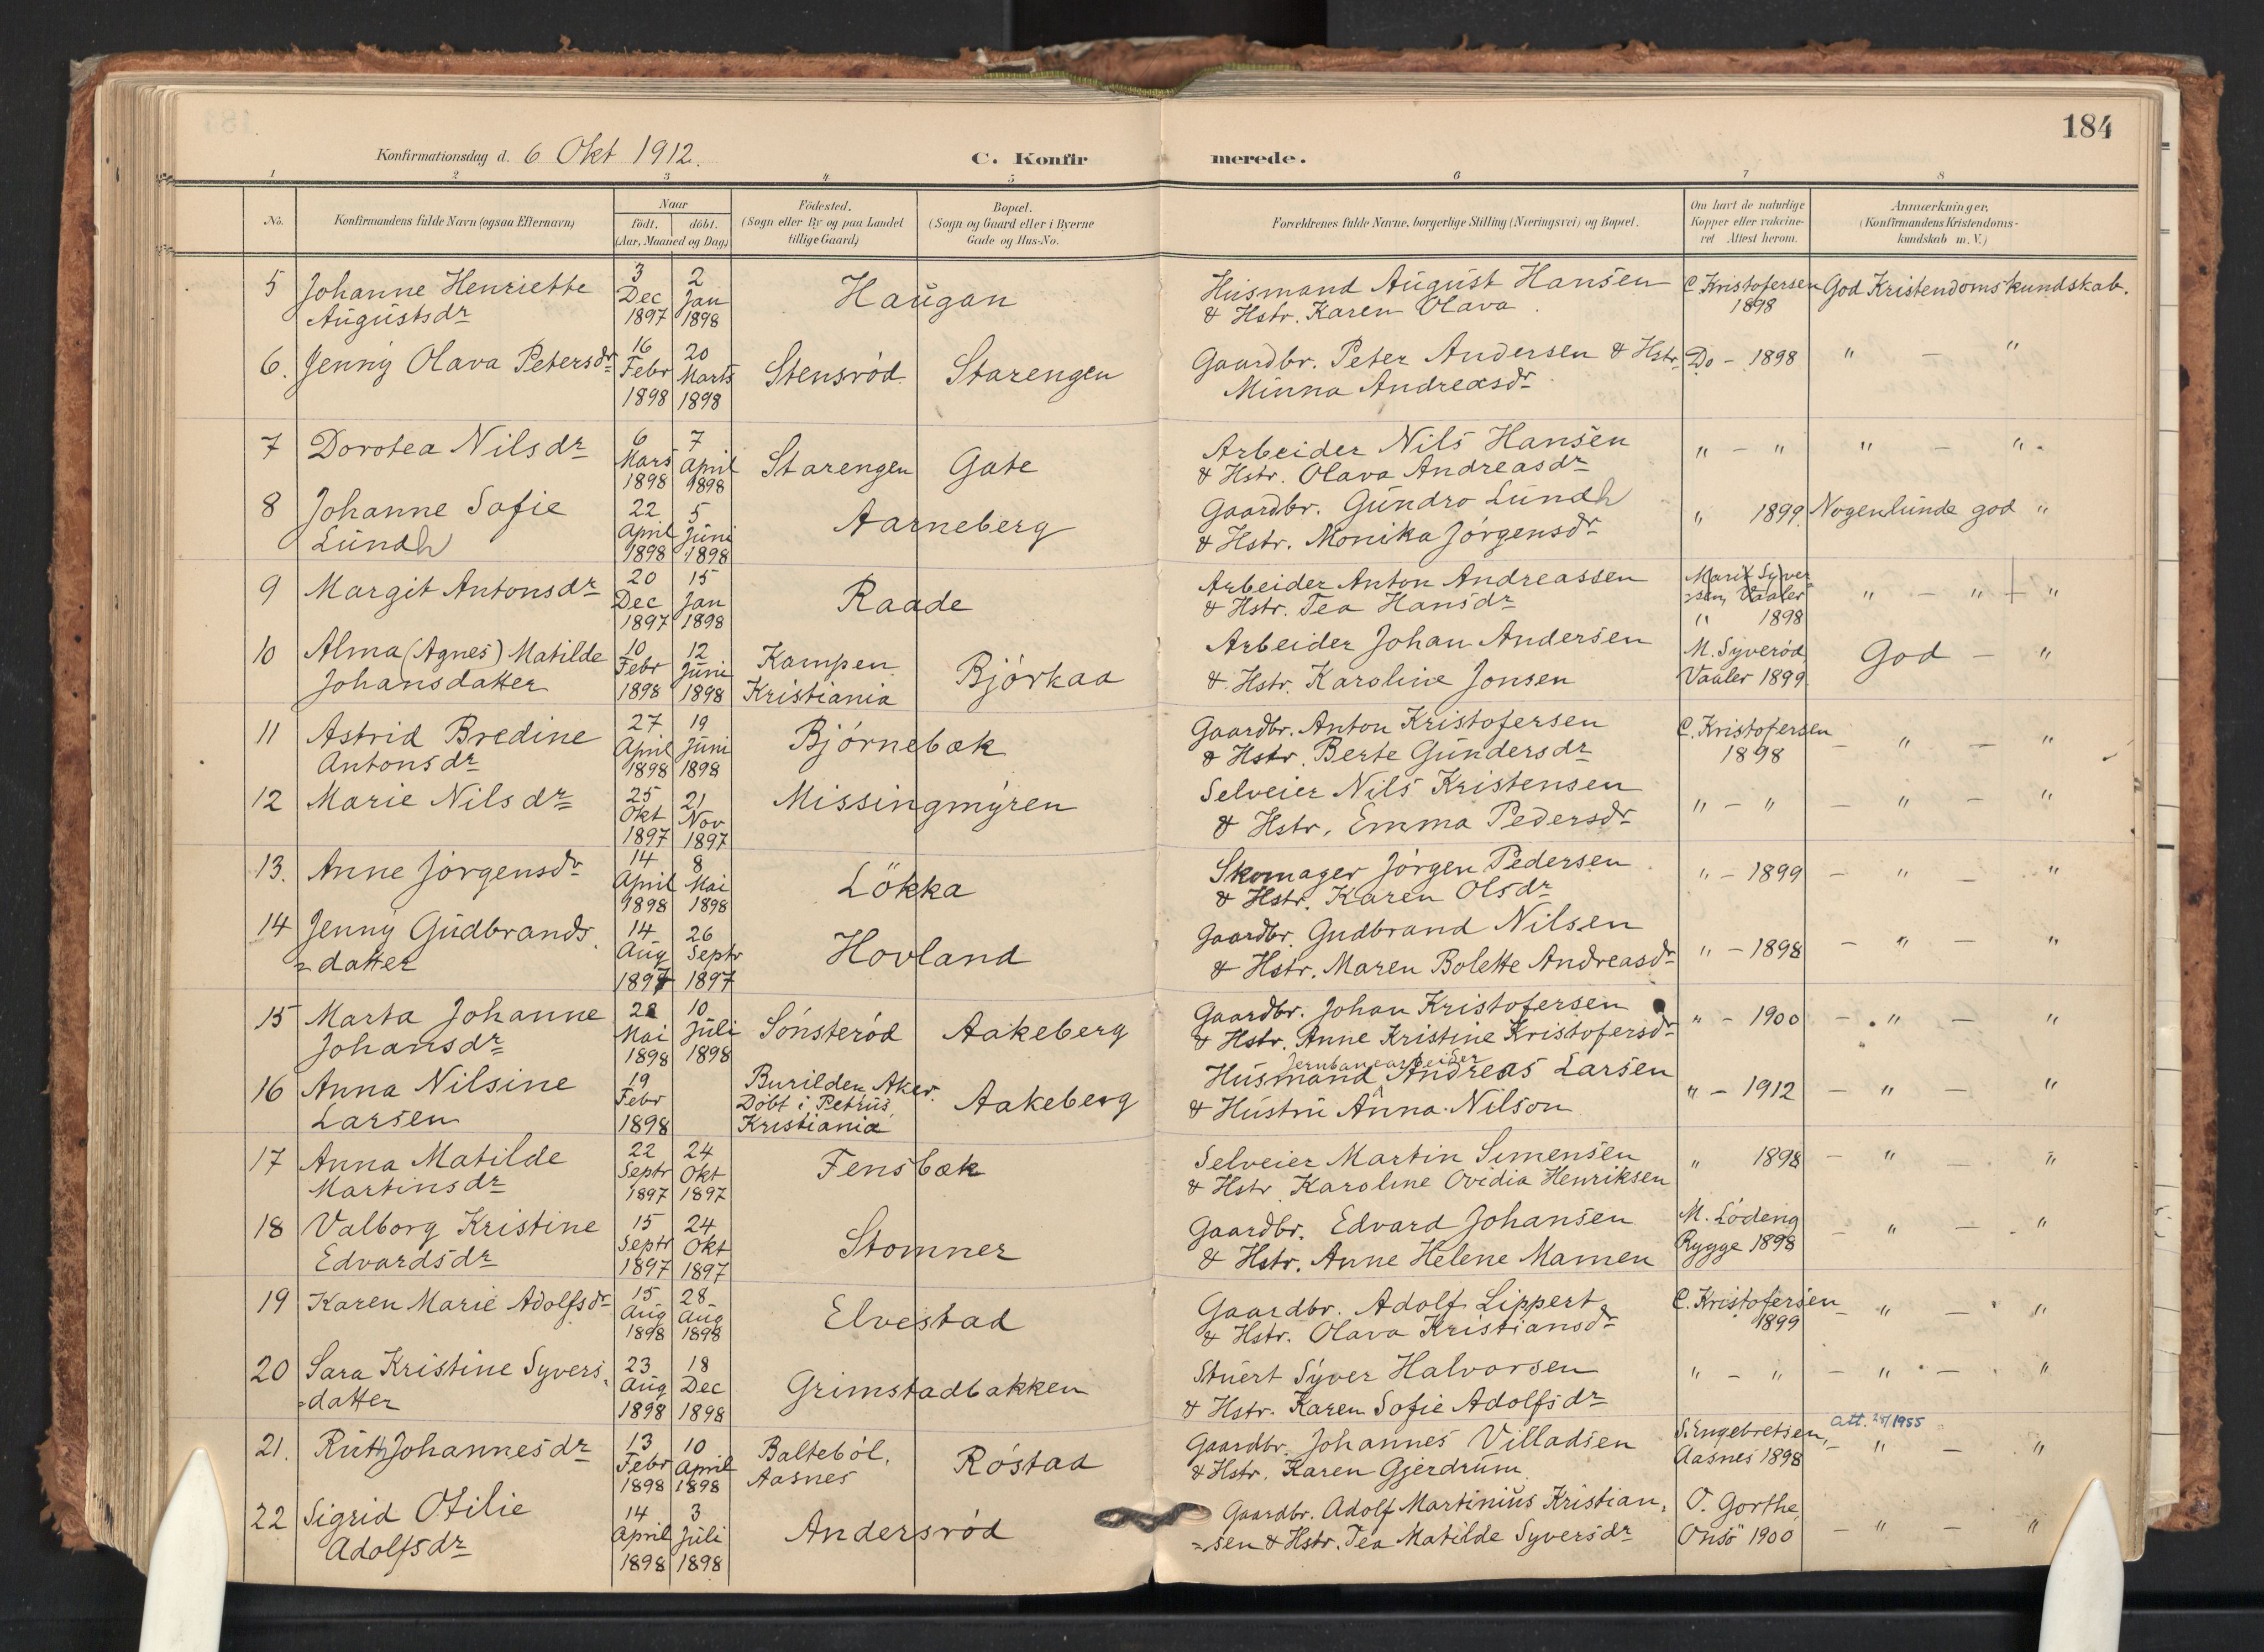 184
Konfirmationsdag d. 6 Okt 1912.
C. Konfirmerede.
1 2 3 4 5 6 7 8
No.
Konfirmandens fulde Navn (ogsaa Efternavn)
Naar
födt. döbt.
(Aar, Maaned og Dag)
Födested.
(Sogn eller By og paa Landet
tillige Gaard)
Bopæl.
(Sogn og Gaard eller i Byerne
Gade og Hus-No.
Forældrenes fulde Navne, borgerlige Stilling (Næringsvei) og Bopæl.
Om havt de naturlige
Kopper eller vakcine-
ret Attest herom.
Anmærkninger.
(Konfirmandens Kristendoms-
kundskab m. V.)
5 Johanne Henriette
Augustsdr
3 Dec 1897
2 Jan 1898
Haugan
Husmand August Hansen
& Hstr. Karen Olava
C. Kristofersen
1898
God Kristendomskundskab.
6. Jenny Olava Petersdr
16 Febr 1898
20 Marts 1898
Stensrød
Starengen
Gaardbr. Peter Andersen & Hstr
Minna Andreasdr
Do - 1898
" — "
7 Dorotea Nilsdr
6 Mars 1898
7 April 1898
Starengen
Gate
Arbeider Nils Hansen
& Hstr. Olava Andreasdr
" - "
" — ".
8 Johanne Sofie
Lundh
22 April 1898
5 Juni 1898
Aarneberg
Gaardbr. Gundro Lundh
& Hstr. Monika Jørgensdr
" 1899.
Nogenlunde god "
9 Margit Antonsdr
20 Dec 1897
15 Jan 1898
Raade
Arbeider Anton Andreassen
& Hstr. Tea Hansdr
Marit Syver
=sen, Vaaler
" 1898
" — " + "
10 Alma (Agnes) Matilde
Johansdatter
10 Febr 1898
12 Juni 1898
Kampen
Kristiania
Bjørkaa
Arbeider Johan Andersen
& Hstr. Karoline Jonsen
M. Syverød,
Vaaler 1899
God — "
11 Astrid Bredine
Antonsdr
27 April 1898
19 Juni 1898
Bjørnebæk
Gaardbr. Anton Kristofersen
& Hstr. Berte Gundersdr
C. Kristofersen
1898
— " — "
12 Marie Nilsdr
25 Okt 1897
21 Nov 1897
Missingmyren
Selveier Nils Kristensen
& Hstr. Emma Pedersdr
" - "
— " — "
13. Anne Jørgensdr
14 April 1898
8 Mai 1898
Lökka
Skomager Jørgen Pedersen
& Hstr. Karen Olsdr
" - 1899
— " — "
14 Jenny Gudbrands
=datter
14 Aug 1897
26 Septr 1897
Hovland
Gaardbr. Gudbrand Nilsen
& Hstr. Maren Bolette Andreasdr
" - 1898
— " — "
15 Marta Johanne
Johansdr
Mai 1898
10 Juli 1898
Sønsterød
Aakeberg
Gaardbr. Johan Kristofersen
& Hstr. Anne Kristine Kristofersdr
" - 1900
— " — "
16 Anna Nilsine
Larsen
19 Febr 1898
Burilden Aker.
Döbt i Petrus,
Kristiania
Aakeberg
Jernbanearbeider
Husmand Andreas Larsen
& Hustru Anna Nilson
" - 1912
— " — "
17 Anna Matilde
Martinsdr
22 Septr 1897
24 Okt 1897
Fensbæk
Selveier Martin Simensen
& Hstr. Karoline Ovidia Henriksen
" 1898
— " — "
18 Valborg Kristine
Edvardsdr
15 Septr 1897
24 Okt 1897
Stomner
Gaardbr. Edvard Johansen
& Hstr. Anne Helene Mamen
M. Lödeng
Rygge 1898
— " — "
19 Karen Marie Adolfsdr
15 Aug 1898
28 Aug 1898
Elvestad
Gaardbr. Adolf Lippert
& Hstr. Olava Kristiansdr
C. Kristofersen
1899
— " — "
20 Sara Kristine Syvers
=datter
23 Aug 1898
18 Dec 1898
Grimstadbakken
Stuert Syver Halvorsen
& Hstr. Karen Sofie Adolfsdr
" - "
— " — "
21. Ruth Johannesdr
13 Febr 1898
10 April 1898
Balteböl,
Aasnes
Røstad
Gaardbr. Johannes Villadsen
& Hstr. Karen Gjerdrum
S. Engebretsen,
Aasnes 1898
Att. /1955
— " — "
22 Sigrid Otilie
Adolfsdr
14 April 1898
3 Juli 1898
Andersrød
Gaardbr. Adolf Martinius Kristian=
=sen & Hstr. Tea Matilde Syversdr
O. Gorthe,
Onsö 1900
— " — "